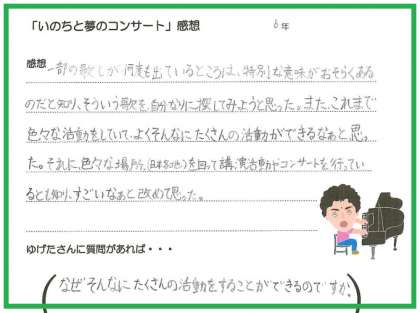 「いのちと夢のコンサート」感想　6年
感想 一部の歌しが何度も出ているところは、特別な意味がおそらくある
のだと知り、そういう歌を、自分なりに探してみようと思った。また、これまで
色々な活動をしていて、よくそんなにたくさんの活動ができるなぁと、思っ
た。それに、色々な場所、(日本各地)を回って講演活動やコンサートを、行ってい
るとも知り、すごいなぁと改めて思った。
ゆげたさんに質問があれば・・・
なぜそんなにたくさんの活動をすることができるのですか。